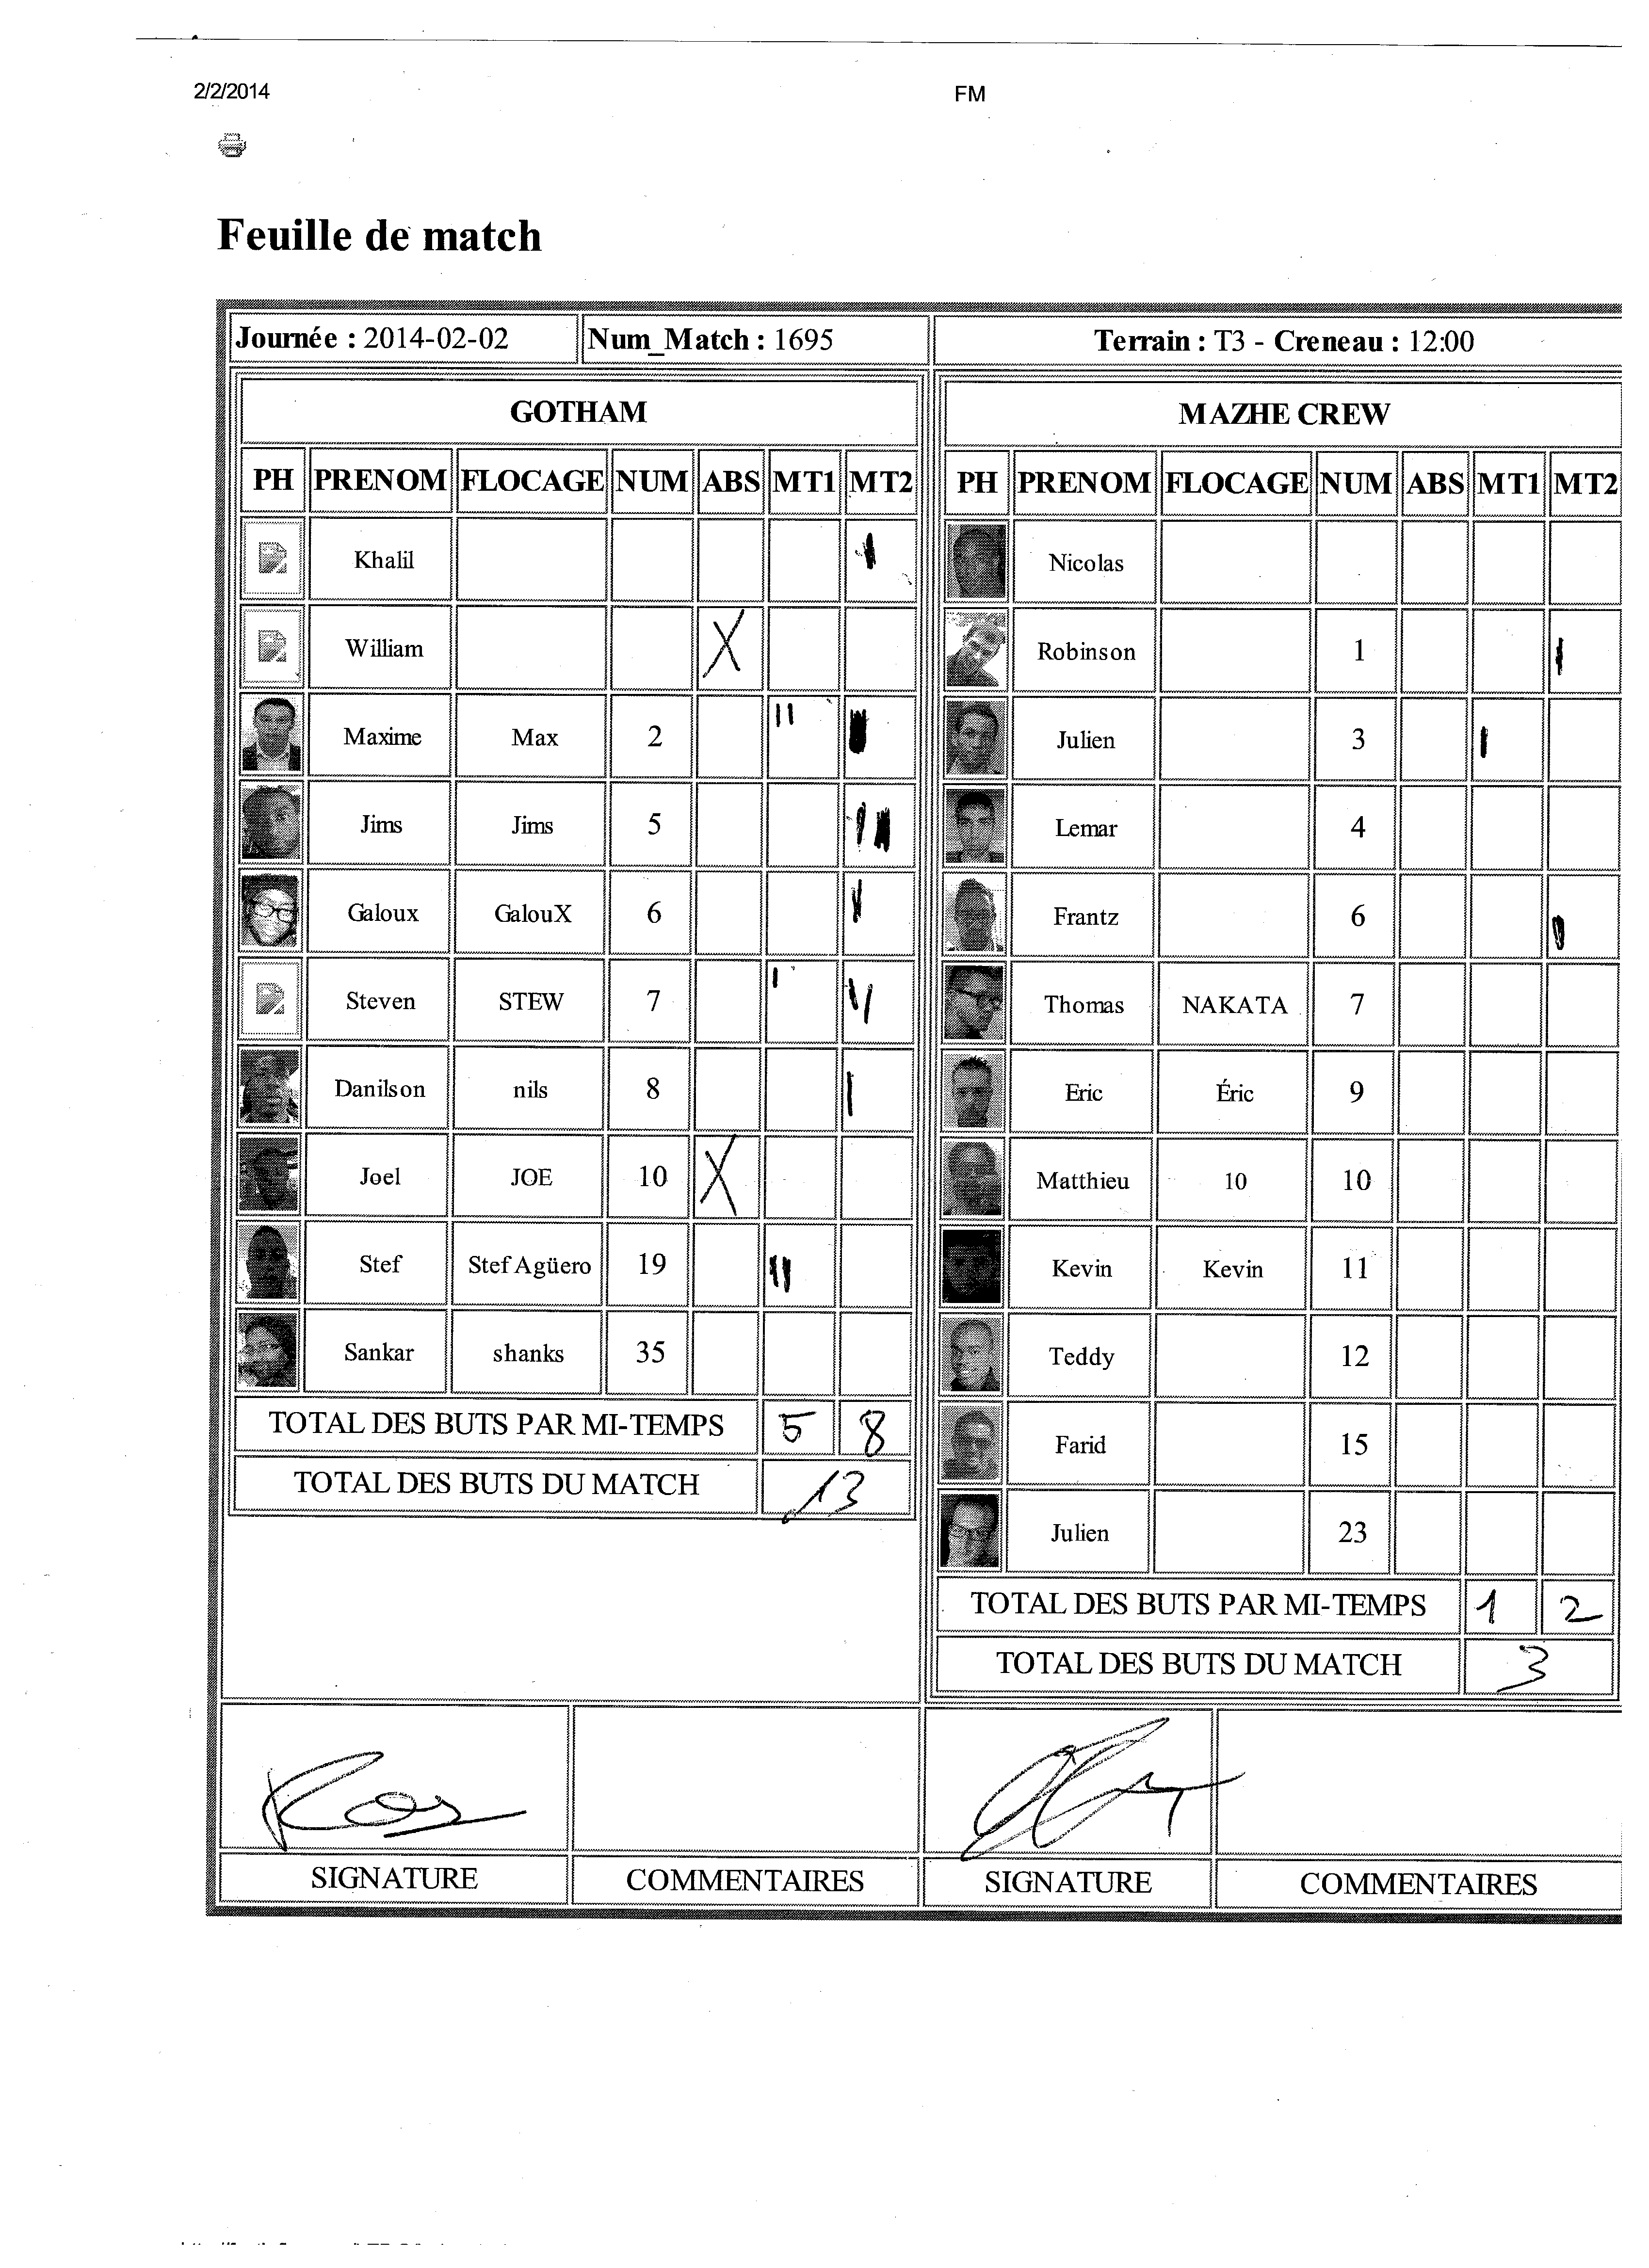 2/2/2014 FM
Feuille de match
Journée : 2014-02-02 Num_Match : 1695 Terrain : T3 - Creneau : 12:00
GOTHAM
PH PRENOM FLOCAGE NUM ABS MT1 MT2
Khalil
William X
Maxime Max 2
Jims Jims 5
Galoux GalouX 6
Steven STEW 7
Danilson nils 8
Joel JOE 10 X
Stef Stef Agüero 19
Sankar shanks 35
TOTAL DES BUTS PAR MI-TEMPS 5 8
TOTAL DES BUTS DU MATCH 13
MAZHE CREW
PH PRENOM FLOCAGE NUM ABS MT1 MT2
Nicolas
Robinson 1
Julien 3
Lemar 4
Frantz 6
Thomas NAKATA 7
Eric Éric 9
Matthieu 10 10
Kevin Kevin 11
Teddy 12
Farid 15
Julien 23
TOTAL DES BUTS PAR MI-TEMPS 1 2
TOTAL DES BUTS DU MATCH 3
SIGNATURE COMMENTAIRES SIGNATURE COMMENTAIRES